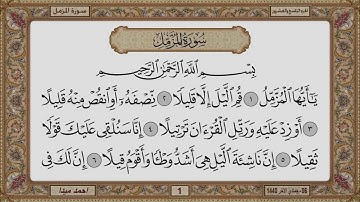 الجزء التاسع والعشرون
سورة المزمل
سُورَةُ المُزَّمِّلِ
بِسْمِ اللَّهِ الرَّحْمَٰنِ الرَّحِيمِ
يَٰٓأَيُّهَا ٱلْمُزَّمِّلُ ۝١ قُمِ ٱلَّيْلَ إِلَّا قَلِيلًا ۝٢ نِّصْفَهُۥٓ أَوِ ٱنقُصْ مِنْهُ قَلِيلًا
۝٣ أَوْ زِدْ عَلَيْهِ وَرَتِّلِ ٱلْقُرْءَانَ تَرْتِيلًا ۝٤ إِنَّا سَنُلْقِى عَلَيْكَ قَوْلًا
ثَقِيلًا ۝٥ إِنَّ نَاشِئَةَ ٱلَّيْلِ هِىَ أَشَدُّ وَطْـًٔا وَأَقْوَمُ قِيلًا ۝٦ إِنَّ لَكَ فِى
1
1440